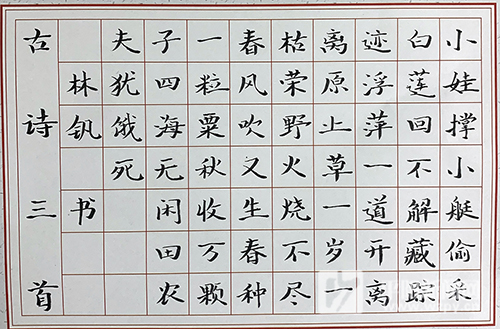 小娃撑小艇偷采
白莲回不解藏踪
迹浮萍一道开离
离原上草一岁一
枯荣野火烧不尽
春风吹又生春种
一粒粟秋收万颗
子四海无闲田农
夫犹饿死
林钒书
古诗三首